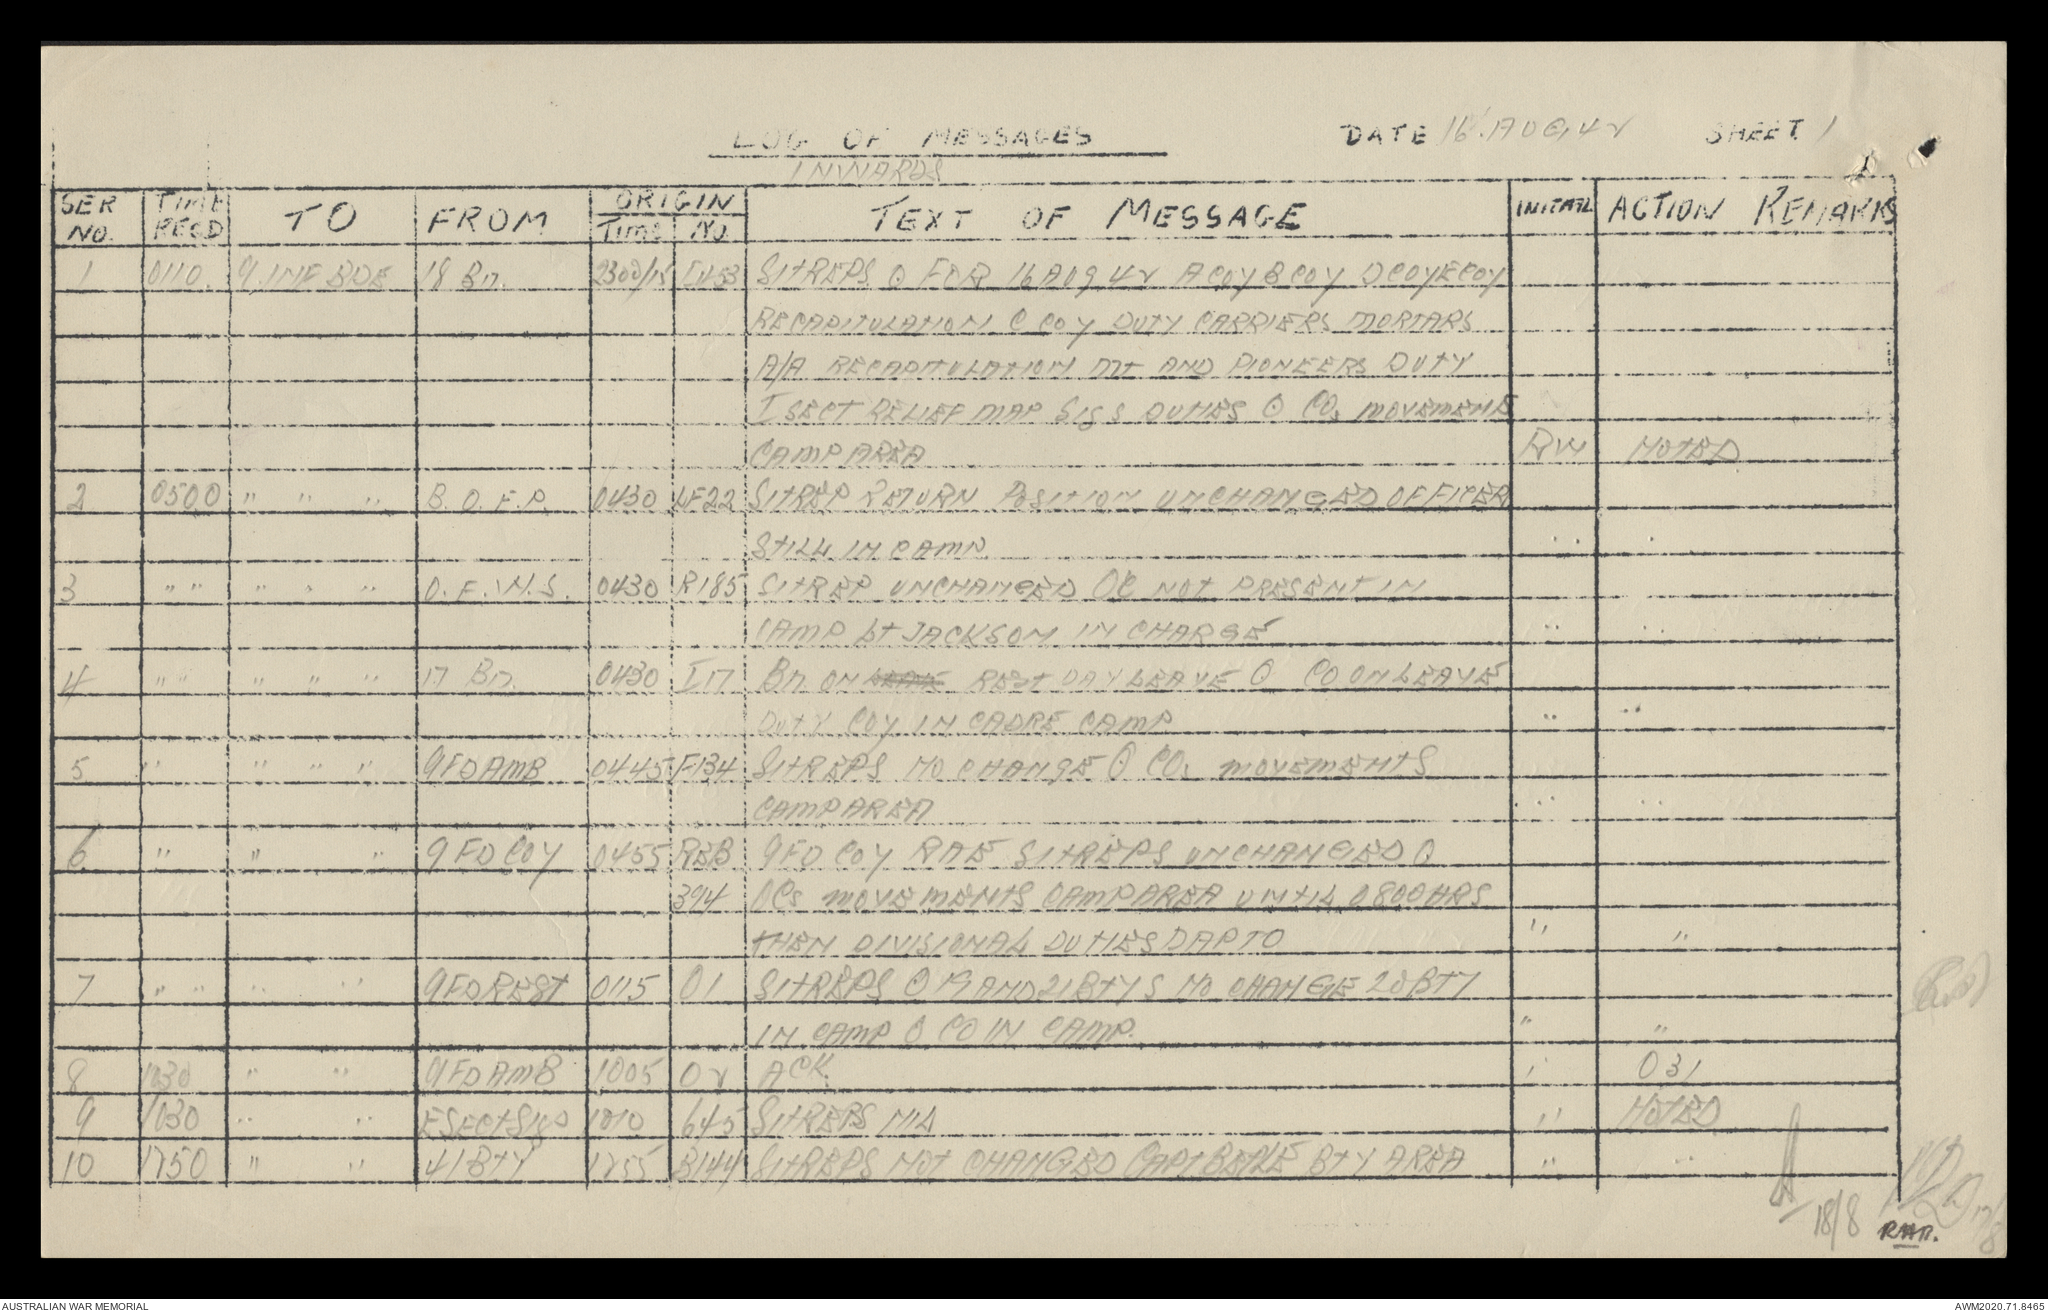 LOG OF MESSAGES DATE 16 AUG, 42 SHEET 1
INWARDS
SER NO. TIME RECD TO FROM ORIGIN TIME NO. TEXT OF MESSAGE INITIAL ACTION REMARKS
1 0110. 9. INF BDE 18 Bn. 2300/15 I453 SITREPS O FOR 16 AUG 42 A COY B COY D COY E COY
RECAPITULATION C COY DUTY CARRIERS MORTARS
A/A RECAPITULATION MT AND PIONEERS DUTY
I SECT RELIEF MAP SIGS DUTIES O COs MOVEMENTS
CAMP AREA RW NOTED
2 0500 " " " B.O.F.P. 0430 LF22 SITREP RETURN POSITION UNCHANGED OFFICER
STILL IN CAMP " "
3 " " " " " O.F.W.S. 0430 R185 SITREP UNCHANGED OC NOT PRESENT IN
CAMP Lt JACKSON IN CHARGE " "
4 " " " " " 17 Bn. 0430 I17 Bn ON LEAVE REST DAY LEAVE O CO ON LEAVE
DUTY COY IN CADRE CAMP " "
5 " " " " 9 FD AMB 0445 F134 SITREPS NO CHANGE O COs MOVEMENTS
CAMP AREA " "
6 " " " 9 FD COY 0455 REB 9 FD COY RAE SITREPS UNCHANGED O
394 OCs MOVEMENTS CAMP AREA UNTIL 0800 HRS
THEN DIVISIONAL DUTIES DAPTO " "
7 " " " " 9 FD REGT 0115 O1 SITREPS O 19 AND 21 BTYS NO CHANGE 20 BTY
IN CAMP O CO IN CAMP. " "
8 1030 " " 9 FD AMB 1005 O2 ACK. " O31
9 1030 " " E SECT SIGS 1010 645 SITREPS NIL " NOTED
10 1750 " " 41 BTY 1755 B144 SITREPS NOT CHANGED CAPT BTY AREA " "
18/8 17/8
AUSTRALIAN WAR MEMORIAL AWM2020.71.8465